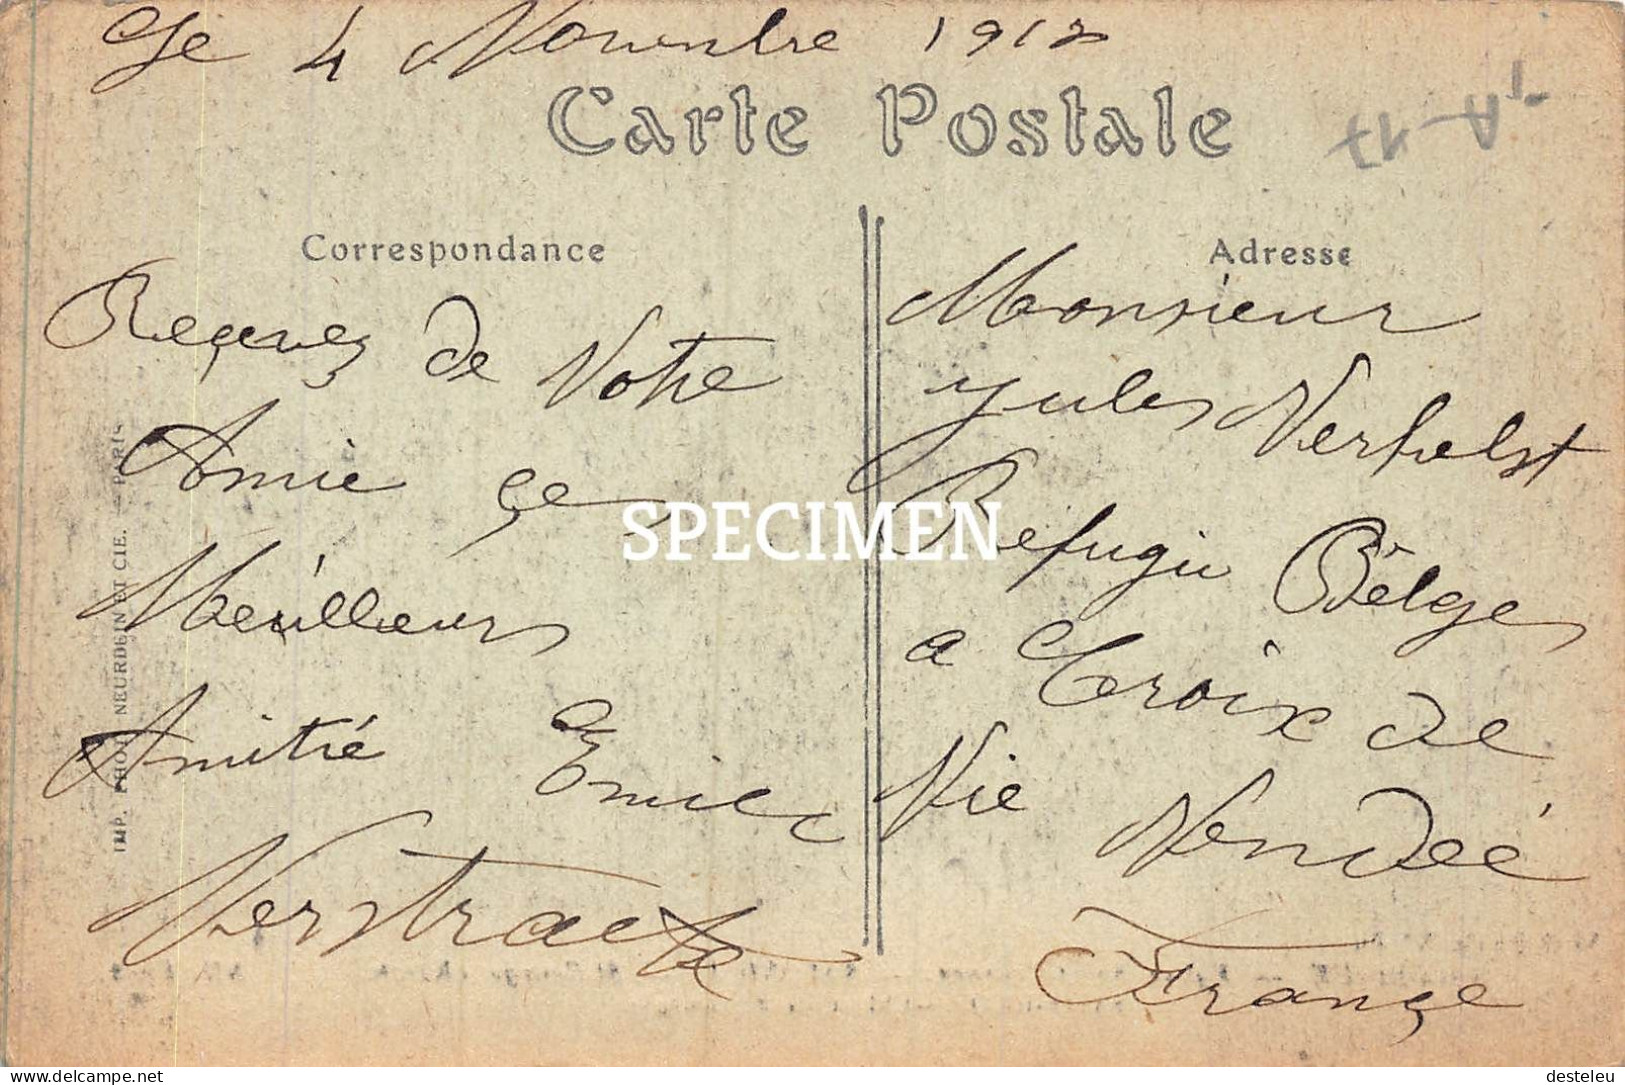 Le 4 Novembre 1917
Carte Postale
Correspondance
Adresse
Reçevez de Votre
Amie çes
Meilleurs
Amitié Emile
Verstraete
Monsieur
Jules Verhelst
Refugiu Belges
a Croix de
Vie Vendeé
Françe
IMP. PHOT. NEURDEIN ET CIE. — PARIS
SPECIMEN
delcampe.net
desteleu